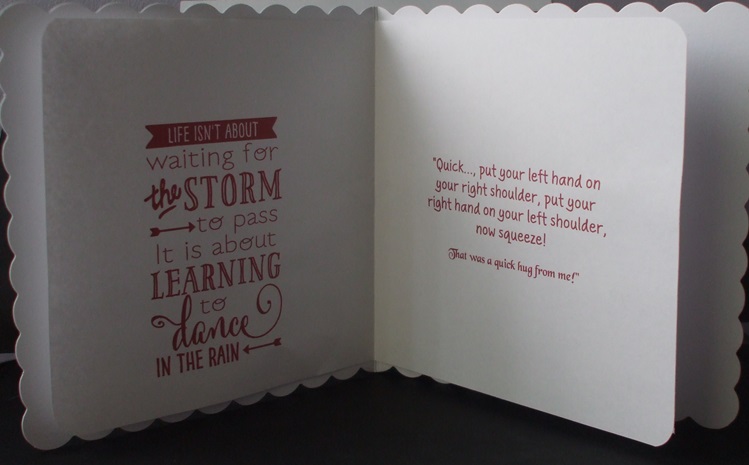 LIFE ISN'T ABOUT
waiting for
the STORM
to pass
It is about
LEARNING
to
dance
IN THE RAIN
"Quick..., put your left hand on
your right shoulder, put your
right hand on your left shoulder,
now squeeze!
That was a quick hug from me!"